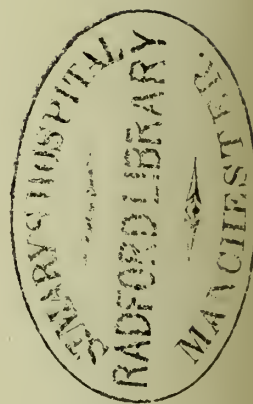 ST MARY'S HOSPITAL
RADFORD LIBRARY
MANCHESTER.